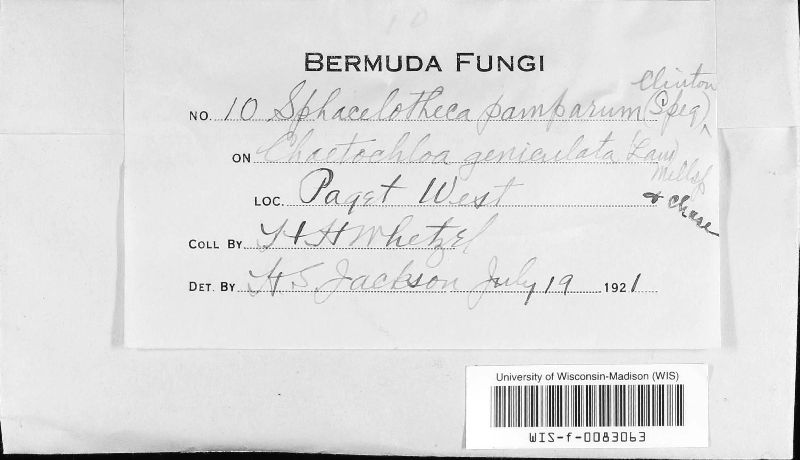 10
BERMUDA FUNGI
NO. 10 Sphacelotheca pamparum (Speg) Clinton
ON Chaetochloa geniculata (Lam) Millsp
& Chase
LOC. Paget West
COLL BY H H Whetzel
DET. BY H S Jackson July 19 1921
University of Wisconsin-Madison (WIS)
WIS-f-0083063